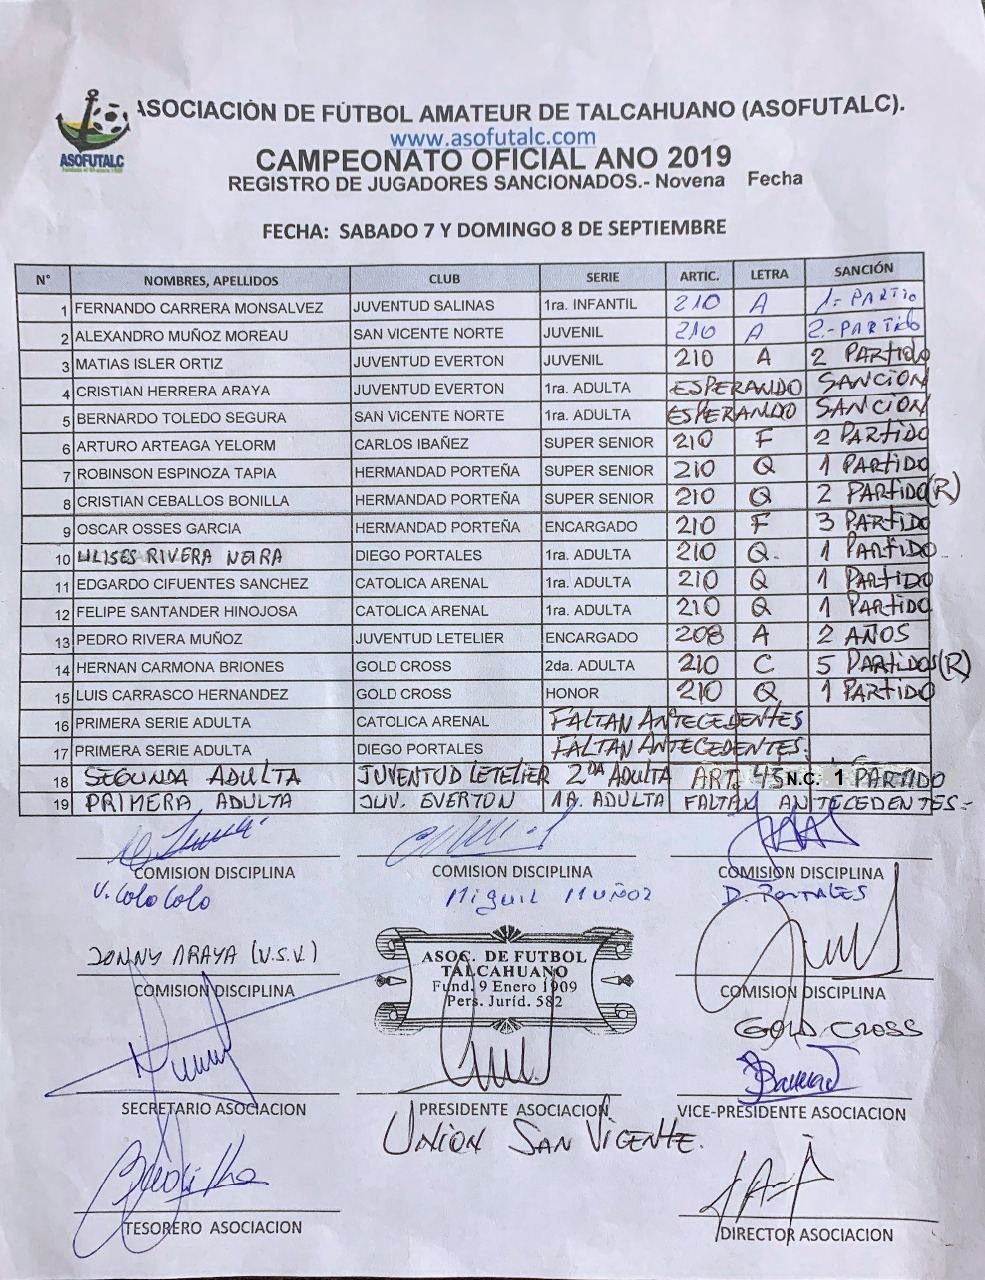 ASOFUTALC
ASOCIACIÓN DE FÚTBOL AMATEUR DE TALCAHUANO (ASOFUTALC).
www.asofutalc.com
CAMPEONATO OFICIAL ANO 2019
REGISTRO DE JUGADORES SANCIONADOS.- Novena Fecha
FECHA: SABADO 7 Y DOMINGO 8 DE SEPTIEMBRE
N° NOMBRES, APELLIDOS CLUB SERIE ARTIC. LETRA SANCIÓN
1 FERNANDO CARRERA MONSALVEZ JUVENTUD SALINAS 1ra. INFANTIL 210 A 1.- PARTIO
2 ALEXANDRO MUÑOZ MOREAU SAN VICENTE NORTE JUVENIL 210 A 2.- PARTIDO
3 MATIAS ISLER ORTIZ JUVENTUD EVERTON JUVENIL 210 A 2 PARTIDO
4 CRISTIAN HERRERA ARAYA JUVENTUD EVERTON 1ra. ADULTA ESPERANDO SANCION
5 BERNARDO TOLEDO SEGURA SAN VICENTE NORTE 1ra. ADULTA ESPERANDO SANCION
6 ARTURO ARTEAGA YELORM CARLOS IBAÑEZ SUPER SENIOR 210 F 2 PARTIDO
7 ROBINSON ESPINOZA TAPIA HERMANDAD PORTEÑA SUPER SENIOR 210 Q 1 PARTIDO
8 CRISTIAN CEBALLOS BONILLA HERMANDAD PORTEÑA SUPER SENIOR 210 Q 2 PARTIDO(R)
9 OSCAR OSSES GARCIA HERMANDAD PORTEÑA ENCARGADO 210 F 3 PARTIDO
10 ULISES RIVERA NEIRA DIEGO PORTALES 1ra. ADULTA 210 Q. 1 PARTIDO
11 EDGARDO CIFUENTES SANCHEZ CATOLICA ARENAL 1ra. ADULTA 210 Q 1 PARTIDO
12 FELIPE SANTANDER HINOJOSA CATOLICA ARENAL 1ra. ADULTA 210 Q 1 PARTIDO
13 PEDRO RIVERA MUÑOZ JUVENTUD LETELIER ENCARGADO 208 A 2 AÑOS
14 HERNAN CARMONA BRIONES GOLD CROSS 2da. ADULTA 210 C 5 PARTIDOS(R)
15 LUIS CARRASCO HERNANDEZ GOLD CROSS HONOR 210 Q 1 PARTIDO
16 PRIMERA SERIE ADULTA CATOLICA ARENAL FALTAN ANTECEDENTES
17 PRIMERA SERIE ADULTA DIEGO PORTALES FALTAN ANTECEDENTES.
18 SEGUNDA ADULTA JUVENTUD LETELIER 2DA ADULTA ART. 45 N.C. 1 PARTIDO
19 PRIMERA ADULTA JUV. EVERTON 1A. ADULTA FALTAN ANTECEDENTES-
COMISION DISCIPLINA COMISION DISCIPLINA COMISION DISCIPLINA
U. Colo Colo Miguel Muñoz D. PORTALES
JONNY ARAYA (U.S.V.)
ASOC. DE FUTBOL
TALCAHUANO
Fund. 9 Enero 1909
Pers. Juríd. 582
COMISION DISCIPLINA COMISION DISCIPLINA
GOLD CROSS
SECRETARIO ASOCIACION PRESIDENTE ASOCIACION VICE-PRESIDENTE ASOCIACION
UNION SAN VICENTE.
TESORERO ASOCIACION DIRECTOR ASOCIACION